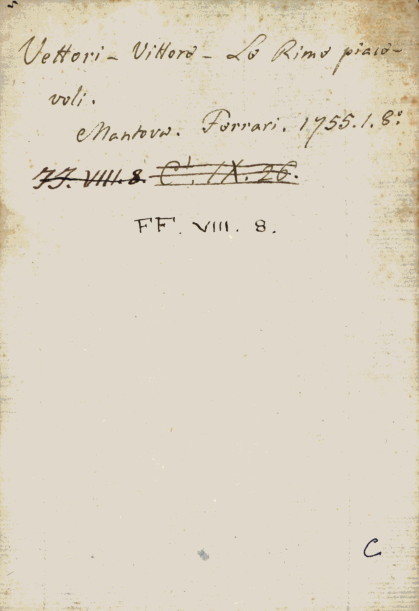 Vettori - Vittore - Le Rime piace-
voli.
Mantova. Ferrari. 1755. 1. 8.º
FF. VIII. 8. C¹. IX. 26.
FF. VIII. 8.
C